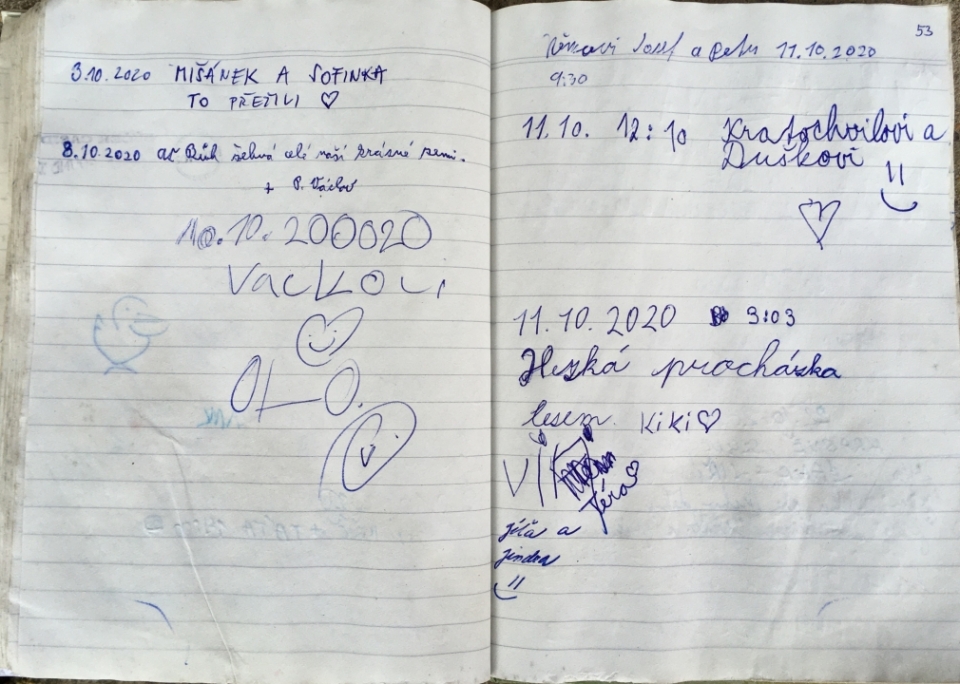 3.10.2020 MIŠÁNEK A SOFINKA
TO PŘEŽILI ♡
8.10.2020 ať Bůh žehná celé naší krásné zemi.
+ P. Václav
10.10.200020
Vackovi
OLO.
53
Josef a Petr 11.10.2020
9:30
11.10. 12:10 Kratochvilovi a
Duškovi
11.10.2020 9:03
Hezká procházka
lesem KiKi♡
Víťa
Jindra